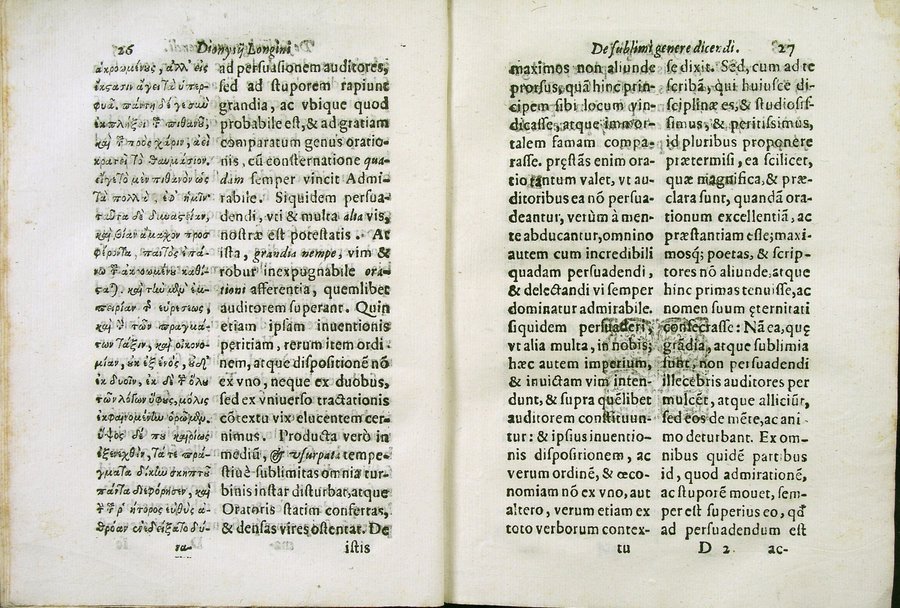 26 Dionysij Longini
ἀκροωμένους, ἀλλ' εἰς
ἔκστασιν ἄγει τὰ ὑπερ-
φυᾶ. πάντη δέ γε σὺν
ἐκπλήξει τοῦ πιθανοῦ,
καὶ τοῦ πρὸς χάριν, ἀεὶ
κρατεῖ τὸ θαυμάσιον.
εἴγε τὸ μὲν πιθανὸν ὡς
τὰ πολλὰ, ἐφ' ἡμῖν·
ταῦτα δὲ δυναστείαν,
καὶ βίαν ἄμαχον προσ
φέροντα, παντὸς ἐπά-
νω τοῦ ἀκροωμένου καθί-
σταται. καὶ τὴν μὲν ἐμ-
πειρίαν τῆς εὑρέσεως,
καὶ τὴν τῶν πραγμά-
των τάξιν, καὶ οἰκονο-
μίαν, οὐκ ἐξ ἑνὸς, οὐδ'
ἐκ δυοῖν, ἐκ δὲ τοῦ ὅλου
τῶν λόγων ὕφους, μόλις
ἐκφαινομένην ὁρῶμεν.
ὕψος δέ που καιρίως
ἐξενεχθὲν, τά τε πρά-
γματα δίκην σκηπτοῦ
πάντα διεφόρησεν, καὶ
τὴν τοῦ ῥήτορος εὐθὺς ἀ-
θρόαν ἐνεδείξατο δύ-
ad persuasionem auditores,
sed ad stuporem rapiunt
grandia, ac vbique quod
probabile est, & ad gratiam
comparatum genus oratio-
nis, cũ consternatione qua-
dam semper vincit Admi-
rabile. Siquidem persua-
dendi, vti & multa alia vis,
nostræ est potestatis. At
ista, grandia nempe, vim &
robur inexpugnabile ora-
tioni afferentia, quemlibet
auditorem superant. Quin
etiam ipsam inuentionis
peritiam, rerum item ordi-
nem, atque dispositionẽ nõ
ex vno, neque ex duobus,
sed ex vniuerso tractationis
cõtextu vix elucentem cer-
nimus. Producta verò in
mediũ, & vsurpata tempe-
stiuè sublimitas omnia tur-
binis instar disturbat, atque
Oratoris statim confertas,
& densas vires ostentat. De
istis
De sublimi genere dicendi. 27
maximos non aliunde
prorsus, quã hinc prin-
cipem sibi locum vin-
dicasse, atque immor-
talem famam compa-
rasse. præstãs enim ora-
tio tantum valet, vt au-
ditoribus ea nõ persua-
deantur, verùm à men-
te abducantur, omnino
autem cum incredibili
quadam persuadendi,
& delectandi vi semper
dominatur admirabile.
siquidem persuaderi,
vt alia multa, in nobis;
hæc autem imperium,
& inuictam vim inten-
dunt, & supra quẽlibet
auditorem constituun-
tur: & ipsius inuentio-
nis dispositionem, ac
verum ordinẽ, & œco-
nomiam nõ ex vno, aut
altero, verum etiam ex
toto verborum contex-
tu
se dixit. Sed, cum ad te
scribã, qui huiusce di-
sciplinæ es, & studiosis-
simus, & peritissimus,
id pluribus proponere
prætermisi, ea scilicet,
quæ magnifica, & præ-
clara sunt, quandã ora-
tionum excellentiã, ac
præstantiam esse; maxi-
mosq; poetas, & scrip-
tores nõ aliunde, atque
hinc primas tenuisse, ac
nomen suum ęternitati
consecrasse: Nã ea, quę
grãdia, atque sublimia
sunt, non persuadendi
illecebris auditores per
mulcẽt, atque alliciũt,
sed eos de mẽte, ac ani
mo deturbant. Ex om-
nibus quidẽ partibus
id, quod admirationẽ,
ac stuporẽ mouet, sem-
per est superius eo, qđ
ad persuadendum est
D 2 ac-